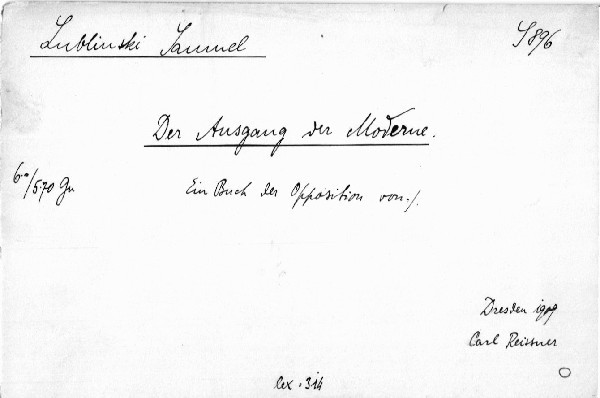 Lublinski Samuel
S 896
Der Ausgang der Moderne.
6°°/570 Gu
Ein Buch der Opposition von ./.
Dresden 1909
Carl Reissner
lex. 314